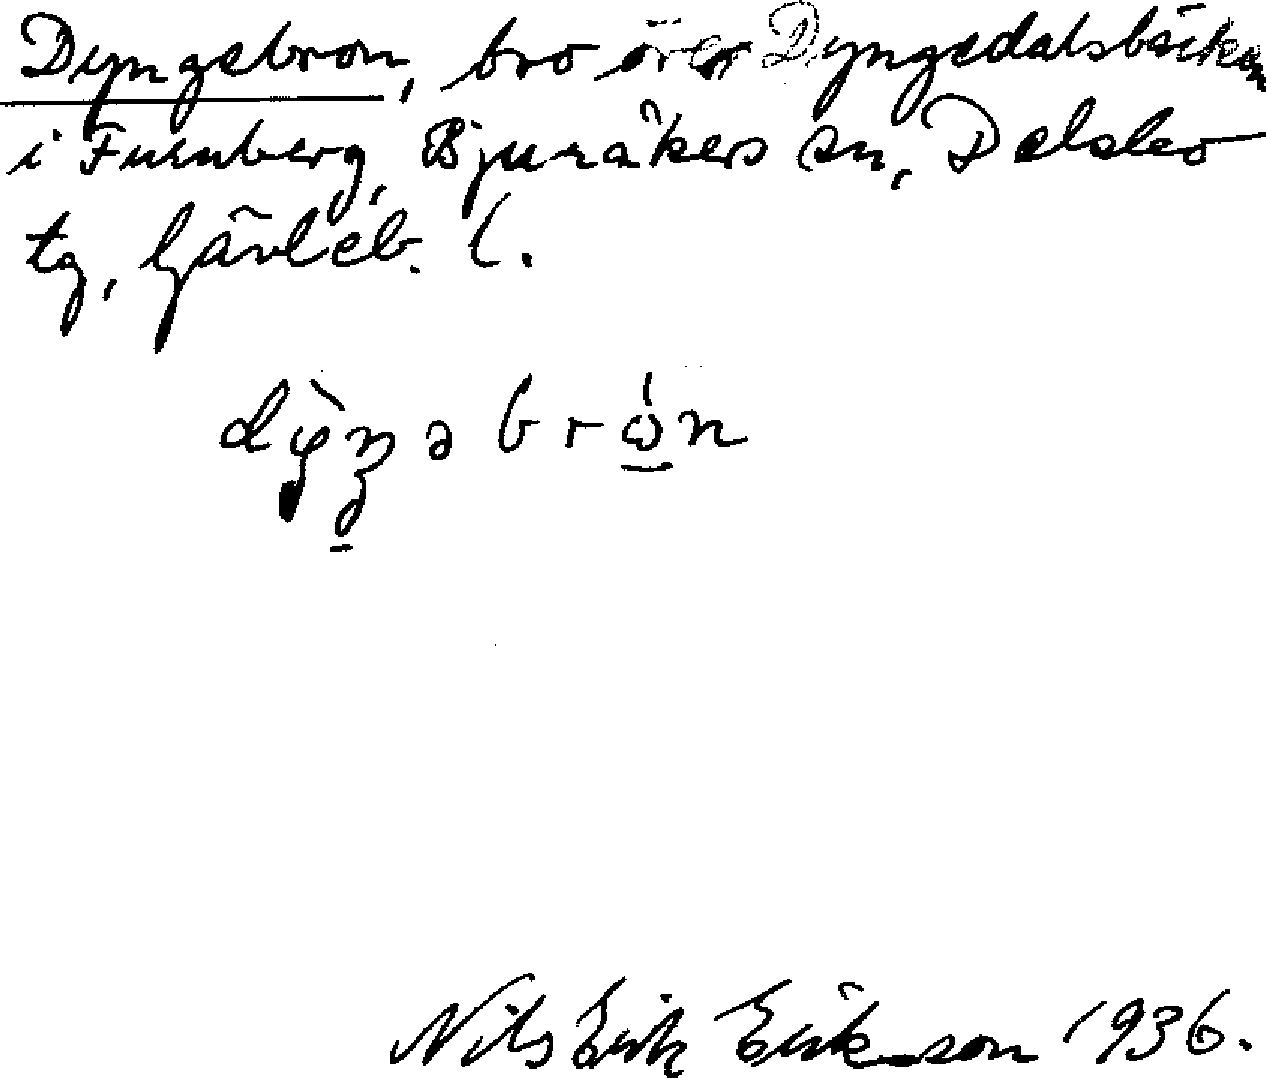 Dyngebron, bro över Dyngedalsbäcken
i Furuberg, Bjuråkers sn, Delsbo
tg, Gävleb. l.
Nils Erik Erikson 1936.